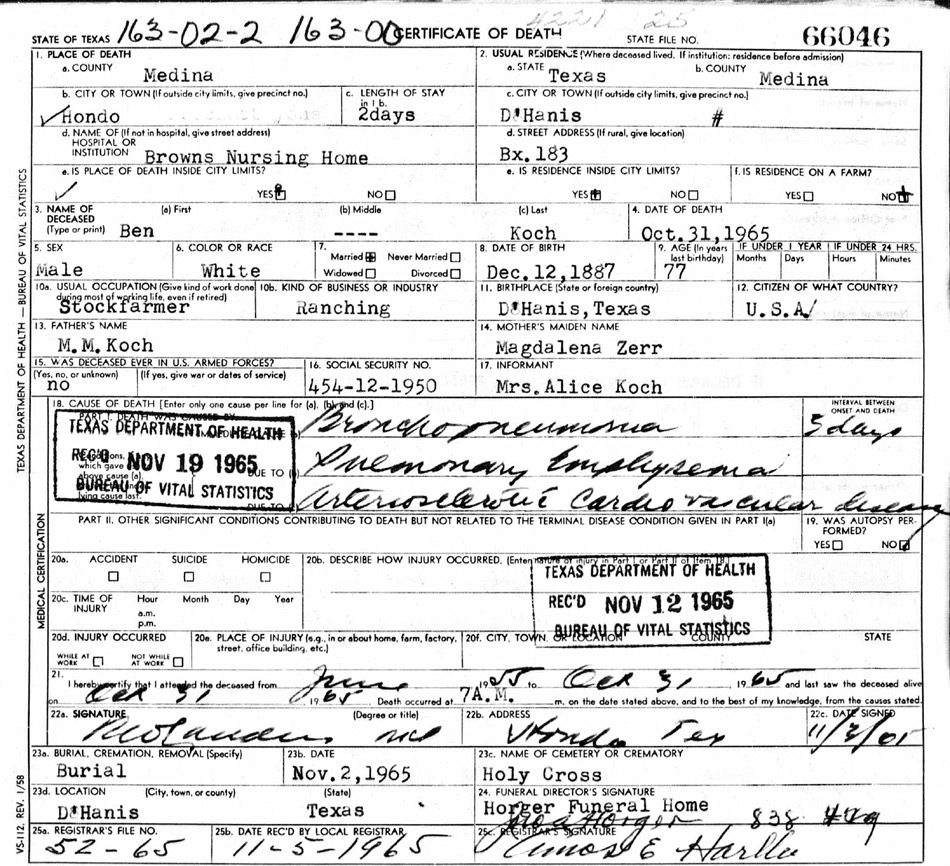 4221 25
STATE OF TEXAS 163-02-2 163-00 CERTIFICATE OF DEATH STATE FILE NO. 66046
1. PLACE OF DEATH
a. COUNTY Medina
2. USUAL RESIDENCE (Where deceased lived. If institution: residence before admission)
a. STATE Texas b. COUNTY Medina
b. CITY OR TOWN (If outside city limits, give precinct no.) Hondo
c. LENGTH OF STAY in 1 b. 2days
c. CITY OR TOWN (If outside city limits, give precinct no.) D'Hanis #
d. NAME OF (If not in hospital, give street address)
HOSPITAL OR
INSTITUTION Browns Nursing Home
d. STREET ADDRESS (If rural, give location)
Bx.183
e. IS PLACE OF DEATH INSIDE CITY LIMITS?
YES NO
e. IS RESIDENCE INSIDE CITY LIMITS?
YES NO
f. IS RESIDENCE ON A FARM?
YES NO
3. NAME OF DECEASED (Type or print) (a) First (b) Middle (c) Last
Ben ---- Koch
4. DATE OF DEATH
Oct.31,1965
5. SEX
Male
6. COLOR OR RACE
White
7. Married Never Married
Widowed Divorced
8. DATE OF BIRTH
Dec.12,1887
9. AGE (In years last birthday)
77
IF UNDER 1 YEAR IF UNDER 24 HRS.
Months Days Hours Minutes
10a. USUAL OCCUPATION (Give kind of work done during most of working life, even if retired)
Stockfarmer
10b. KIND OF BUSINESS OR INDUSTRY
Ranching
11. BIRTHPLACE (State or foreign country)
D'Hanis,Texas
12. CITIZEN OF WHAT COUNTRY?
U.S.A/
13. FATHER'S NAME
M.M.Koch
14. MOTHER'S MAIDEN NAME
Magdalena Zerr
15. WAS DECEASED EVER IN U.S. ARMED FORCES?
(Yes, no, or unknown) (If yes, give war or dates of service)
no
16. SOCIAL SECURITY NO.
454-12-1950
17. INFORMANT
Mrs.Alice Koch
18. CAUSE OF DEATH [Enter only one cause per line for (a), (b), and (c).]
INTERVAL BETWEEN ONSET AND DEATH
PART I. DEATH WAS CAUSED BY
Bronchopneumonia 3 days
which gave
above cause (a),
lying cause last.
DUE TO (b) Pulmonary Emphysema
DUE TO Arteriosclerotic Cardiovascular disease
TEXAS DEPARTMENT OF HEALTH
REC'D NOV 19 1965
BUREAU OF VITAL STATISTICS
PART II. OTHER SIGNIFICANT CONDITIONS CONTRIBUTING TO DEATH BUT NOT RELATED TO THE TERMINAL DISEASE CONDITION GIVEN IN PART I(a)
19. WAS AUTOPSY PERFORMED?
YES NO
20a. ACCIDENT SUICIDE HOMICIDE
20b. DESCRIBE HOW INJURY OCCURRED. (Enter nature of injury in Part I or Part II of Item 18)
20c. TIME OF INJURY Hour Month Day Year
a.m.
p.m.
TEXAS DEPARTMENT OF HEALTH
REC'D NOV 12 1965
BUREAU OF VITAL STATISTICS
20d. INJURY OCCURRED
WHILE AT WORK NOT WHILE AT WORK
20e. PLACE OF INJURY (e.g., in or about home, farm, factory, street, office building, etc.)
20f. CITY, TOWN, OR LOCATION COUNTY STATE
21. I hereby certify that I attended the deceased from June 1955 to Oct 31 1965 and last saw the deceased alive
on Oct 31 1965 Death occurred at 7A.M. m. on the date stated above, and to the best of my knowledge, from the causes stated.
22a. SIGNATURE (Degree or title)
MD
22b. ADDRESS
Hondo Tex
22c. DATE SIGNED
23a. BURIAL, CREMATION, REMOVAL (Specify)
Burial
23b. DATE
Nov.2,1965
23c. NAME OF CEMETERY OR CREMATORY
Holy Cross
23d. LOCATION (City, town, or county) (State)
D'Hanis Texas
24. FUNERAL DIRECTOR'S SIGNATURE
Horger Funeral Home
Horger 838
25a. REGISTRAR'S FILE NO.
52-65
25b. DATE REC'D BY LOCAL REGISTRAR
11-5-1965
25c. REGISTRAR'S SIGNATURE
Amos E
TEXAS DEPARTMENT OF HEALTH — BUREAU OF VITAL STATISTICS
MEDICAL CERTIFICATION
VS-112. REV. 1/58